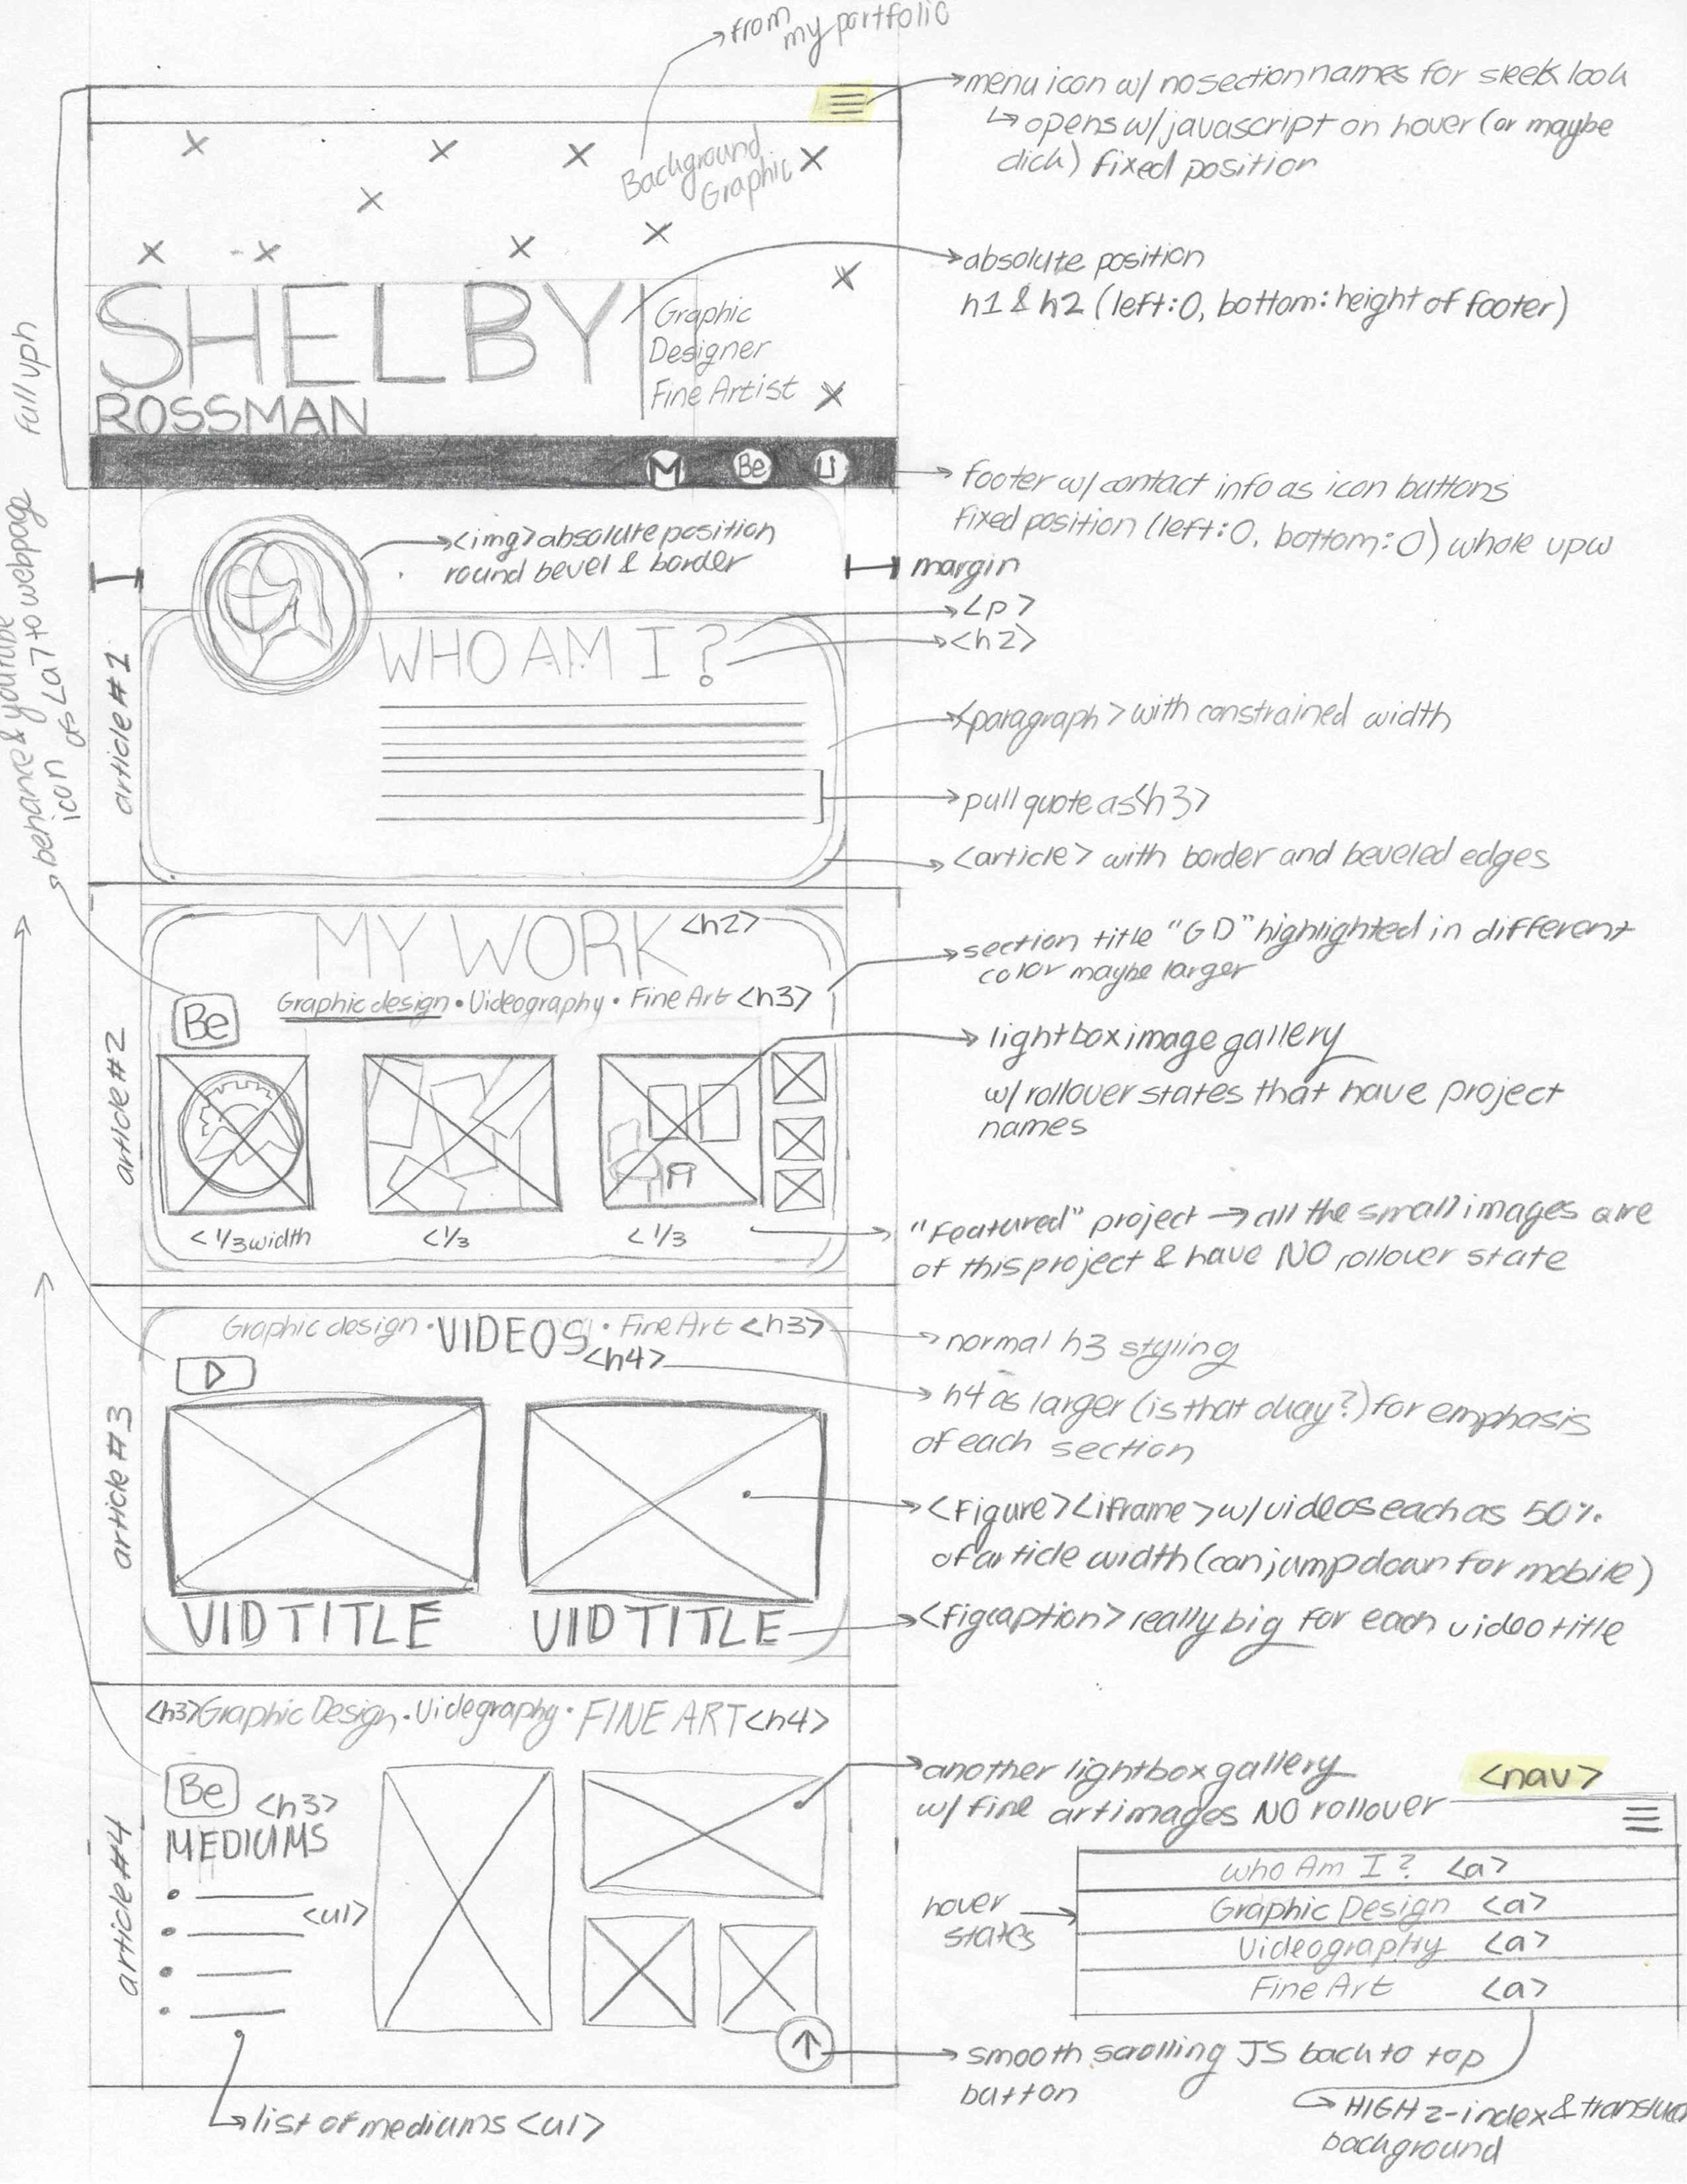 from
my portfolio
menu icon w/ no section names for sleek look
opens w/ javascript on hover (or maybe
click) fixed position
Background
Graphic
absolute position
h1 & h2 (left:0, bottom: height of footer)
SHELBY
ROSSMAN
Graphic
Designer
Fine Artist
Full vph
M
Be
footer w/ contact info as icon buttons
fixed position (left:0, bottom:0) whole vpw
<img> absolute position
round bevel & border
margin
<p>
<h2>
article #1
WHO AM I?
<paragraph> with constrained width
pull quote as <h3>
<article> with border and beveled edges
behance & youtube
icon as <a> to webpage
article #2
MY WORK <h2>
section title "GD" highlighted in different
color maybe larger
Be
Graphic design • Videography • Fine Art <h3>
lightbox image gallery
w/ rollover states that have project
names
< 1/3 width
< 1/3
< 1/3
"Featured" project → all the small images are
of this project & have NO rollover state
article #3
Graphic design • VIDEOS • Fine Art <h3>
<h4>
normal h3 styling
h4 as larger (is that okay?) for emphasis
of each section
<figure> <iframe> w/ videos each as 50%
of article width (can jump down for mobile)
VID TITLE
VID TITLE
<figcaption> really big for each video title
article #4
<h3> Graphic Design • Videgraphy • FINE ART <h4>
Be
<h3>
MEDIUMS
<ul>
another lightbox gallery
w/ fine art images NO rollover
<nav>
hover
states
Who Am I? <a>
Graphic Design <a>
Videography <a>
Fine Art <a>
smooth scrolling JS back to top
button
HIGH z-index &
background
list of mediums <ul>